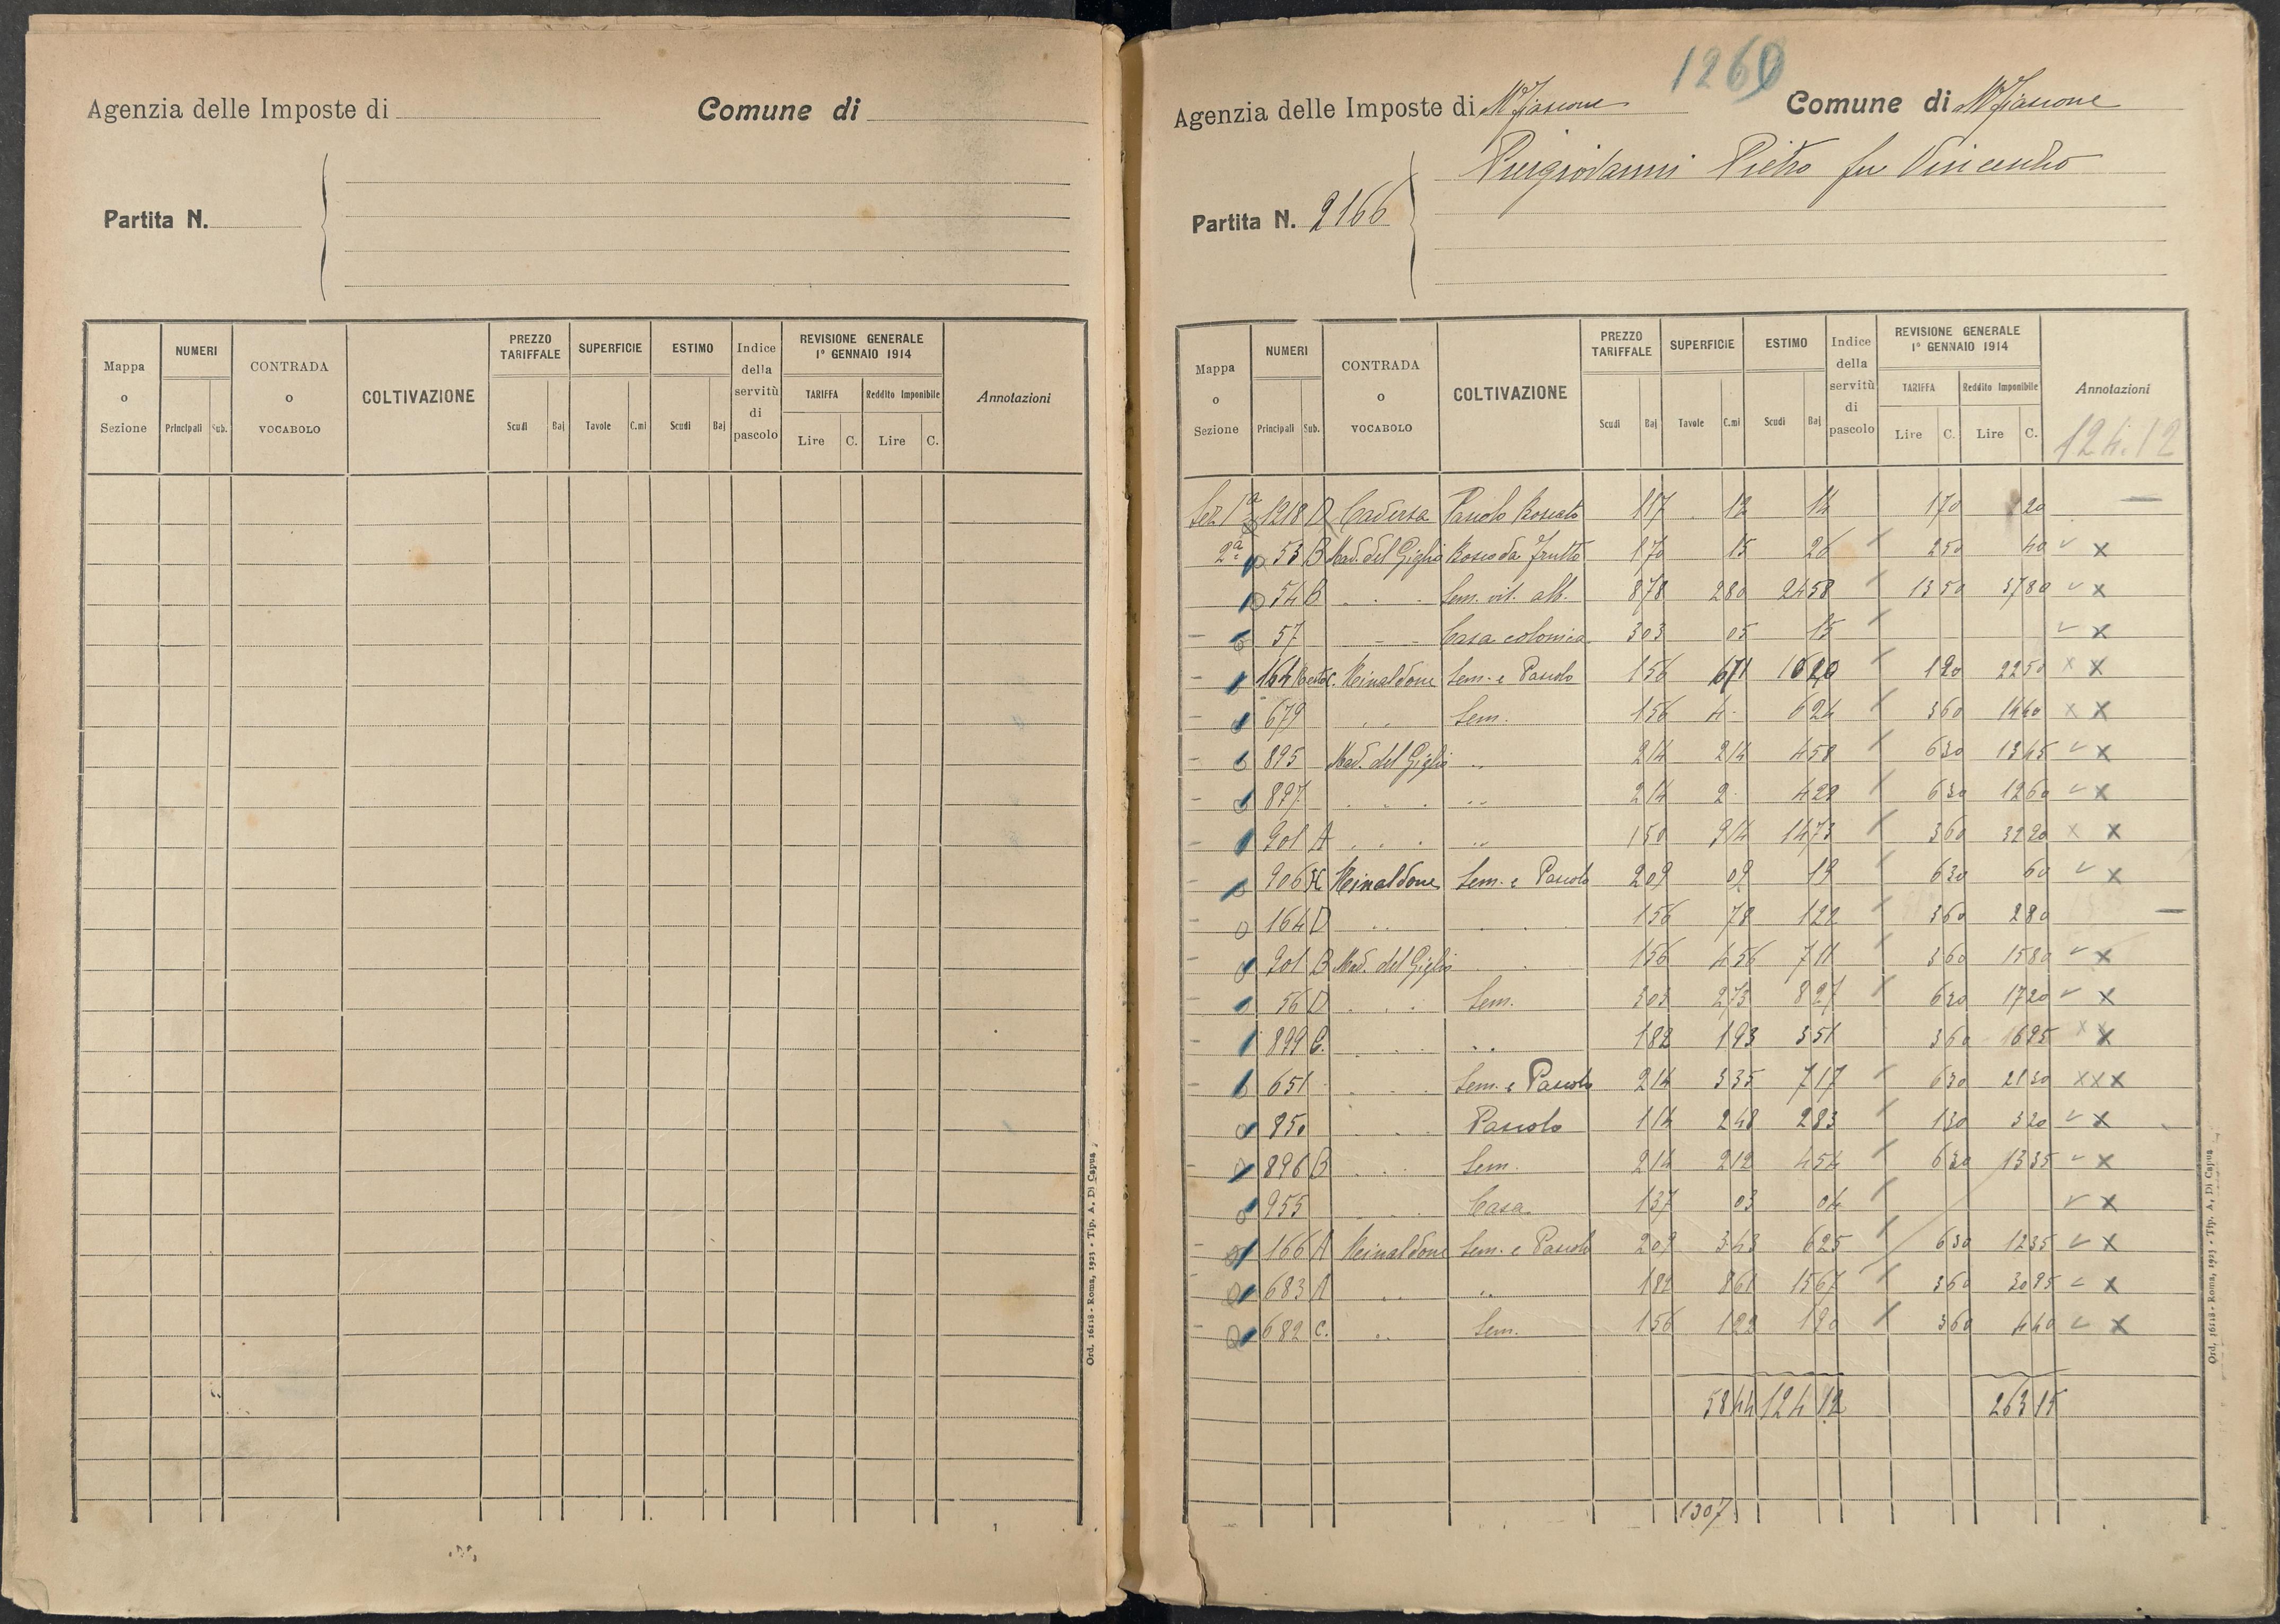 Agenzia delle Imposte di
Comune di
Partita N.
Mappa o Sezione
NUMERI
Principali Sub.
CONTRADA o VOCABOLO
COLTIVAZIONE
PREZZO TARIFFALE
Scudi Baj
SUPERFICIE
Tavole C.mi
ESTIMO
Scudi Baj
Indice della servitù di pascolo
REVISIONE GENERALE 1° GENNAIO 1914
TARIFFA
Lire C.
Reddito Imponibile
Lire C.
Annotazioni
Ord. 16118 - Roma, 1923 - Tip. A. Di Capua
1260
Agenzia delle Imposte di M Fiascone
Comune di M Fiascone
Piergiovanni Pietro fu Vincenzo
Partita N. 2166
Mappa o Sezione
NUMERI
Principali Sub.
CONTRADA o VOCABOLO
COLTIVAZIONE
PREZZO TARIFFALE
Scudi Baj
SUPERFICIE
Tavole C.mi
ESTIMO
Scudi Baj
Indice della servitù di pascolo
REVISIONE GENERALE 1° GENNAIO 1914
TARIFFA
Lire C.
Reddito Imponibile
Lire C.
Annotazioni
124.12
Sez 1ª 1218 D Pascolo Boscato 117 12 14 170 20
2ª 53 B Mad. del Giglio Bosco da frutto 170 15 26 250 40 x
54 B Sem. vit. alb. 878 280 2458 1350 3780 x
57 Casa colonica 303 05 15 x
164 Rinaldone Sem. e Pascolo 156 671 2250 x x
679 Sem. 156 4 624 360 1440 x x
895 Mad. del Giglio 214 214 458 630 1345 x
897 214 2 428 630 1260 x
901 A 914 1473 360 3220 x x
906 Rinaldone Sem. e Pascolo 209 09 19 630 60 x
164 D 156 78 122 360 280
901 B Mad. del Giglio 156 456 711 360 1580 x
56 D Sem. 303 273 827 630 1720 x
899 C. 182 193 351 360 1695 x x
651 Sem. e Pascolo 214 335 717 630 2130 x x x
850 Pascolo 114 248 283 130 320 x
896 B Sem. 214 212 454 630 1335 x
955 Casa 137 03 04 x
166 A Rinaldone Sem. e Pascolo 209 343 625 630 1235 x
683 A 182 861 1567 360 3095 x
682 C. Sem. 156 122 190 360 440 x
5844 124 12 263 15
1307
Ord. 16118 - Roma, 1923 - Tip. A. Di Capua